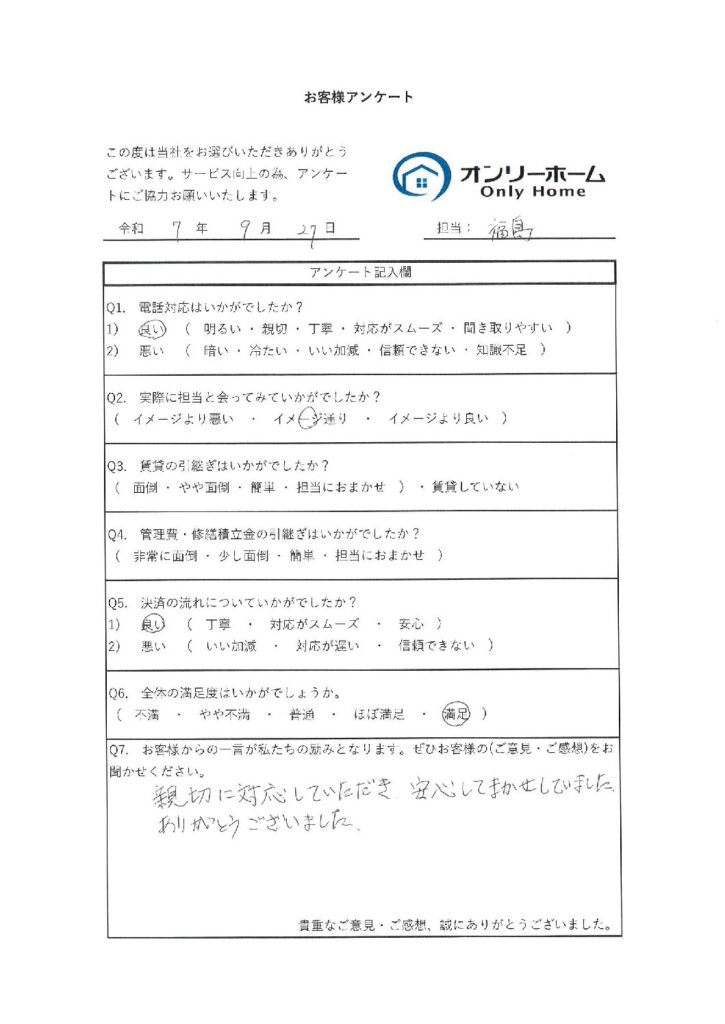 お客様アンケート
この度は当社をお選びいただきありがとう
ございます。サービス向上の為、アンケー
トにご協力お願いいたします。
オンリーホーム
Only Home
令和 7 年 9 月 27 日 担当： 福島
アンケート記入欄
Q1. 電話対応はいかがでしたか？
1) 良い （ 明るい ・ 親切 ・ 丁寧 ・ 対応がスムーズ ・ 聞き取りやすい ）
2) 悪い （ 暗い ・ 冷たい ・ いい加減 ・ 信頼できない ・ 知識不足 ）
Q2. 実際に担当と会ってみていかがでしたか？
（ イメージより悪い ・ イメージ通り ・ イメージより良い ）
Q3. 賃貸の引継ぎはいかがでしたか？
（ 面倒 ・ やや面倒 ・ 簡単 ・ 担当におまかせ ） ・ 賃貸していない
Q4. 管理費・修繕積立金の引継ぎはいかがでしたか？
（ 非常に面倒 ・ 少し面倒 ・ 簡単 ・ 担当におまかせ ）
Q5. 決済の流れについていかがでしたか？
1) 良い （ 丁寧 ・ 対応がスムーズ ・ 安心 ）
2) 悪い （ いい加減 ・ 対応が遅い ・ 信頼できない ）
Q6. 全体の満足度はいかがでしょうか。
（ 不満 ・ やや不満 ・ 普通 ・ ほぼ満足 ・ 満足 ）
Q7. お客様からの一言が私たちの励みとなります。ぜひお客様の(ご意見・ご感想)をお
聞かせください。
親切に対応していただき、安心してまかせしていました
ありがとうございました、
貴重なご意見・ご感想、誠にありがとうございました。